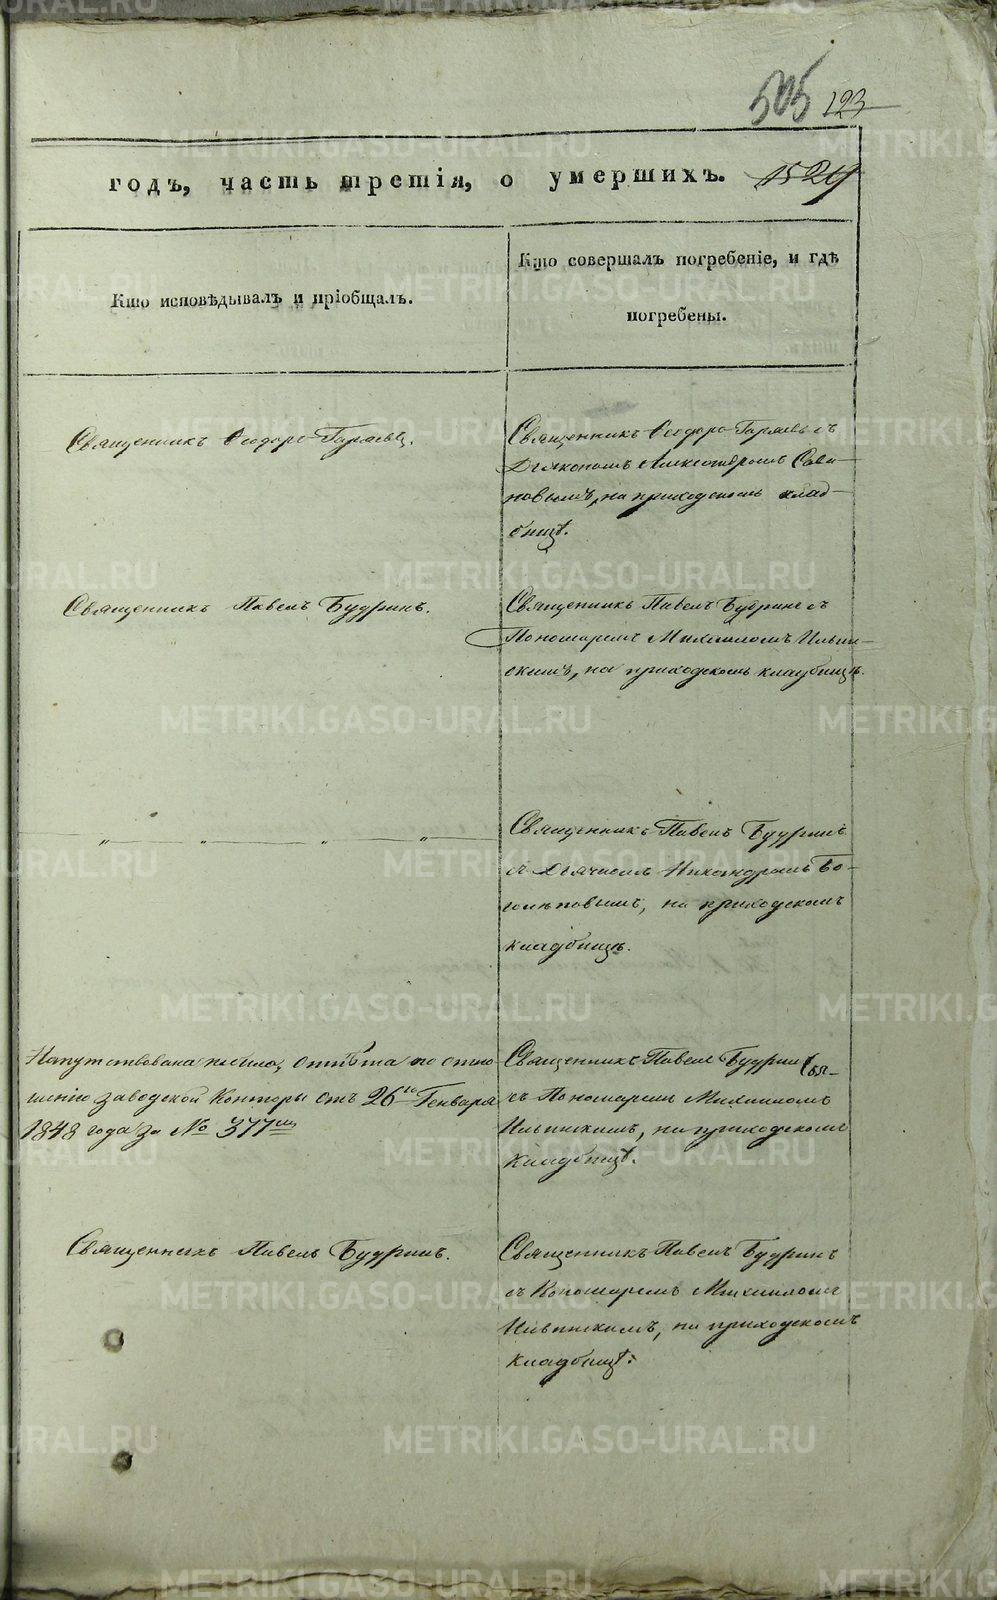 505 123
годъ, часть третія, о умершихъ. 1529
Кто исповѣдывалъ и пріобщалъ.
Кто совершалъ погребеніе, и гдѣ
погребены.
Священникъ Ѳеодоръ Гаряевъ.
Священникъ Ѳеодоръ Гаряевъ съ
Діакономъ Александромъ Сави-
новымъ, на приходскомъ клад-
бищѣ.
Священникъ Павелъ Будринъ.
Священникъ Павелъ Будринъ съ
Пономаремъ Михаиломъ Ильин-
скимъ, на приходскомъ кладбищѣ.
„ „ „ „
Священникъ Павелъ Будринъ
съ Дьячкомъ Никандромъ Бо-
голѣповымъ, на приходскомъ
кладбищѣ.
Напутствована не была, отпѣта по отно-
шенію заводской Конторы отъ 26го Генваря
1848 года за № 377мъ
Священникъ Павелъ Будринъ
съ Пономаремъ Михаиломъ
Ильинскимъ, на приходскомъ
кладбищѣ.
Священникъ Павелъ Будринъ.
Священникъ Павелъ Будринъ
съ Пономаремъ Михаиломъ
Ильинскимъ, на приходскомъ
кладбищѣ.
METRIKI.GASO-URAL.RU